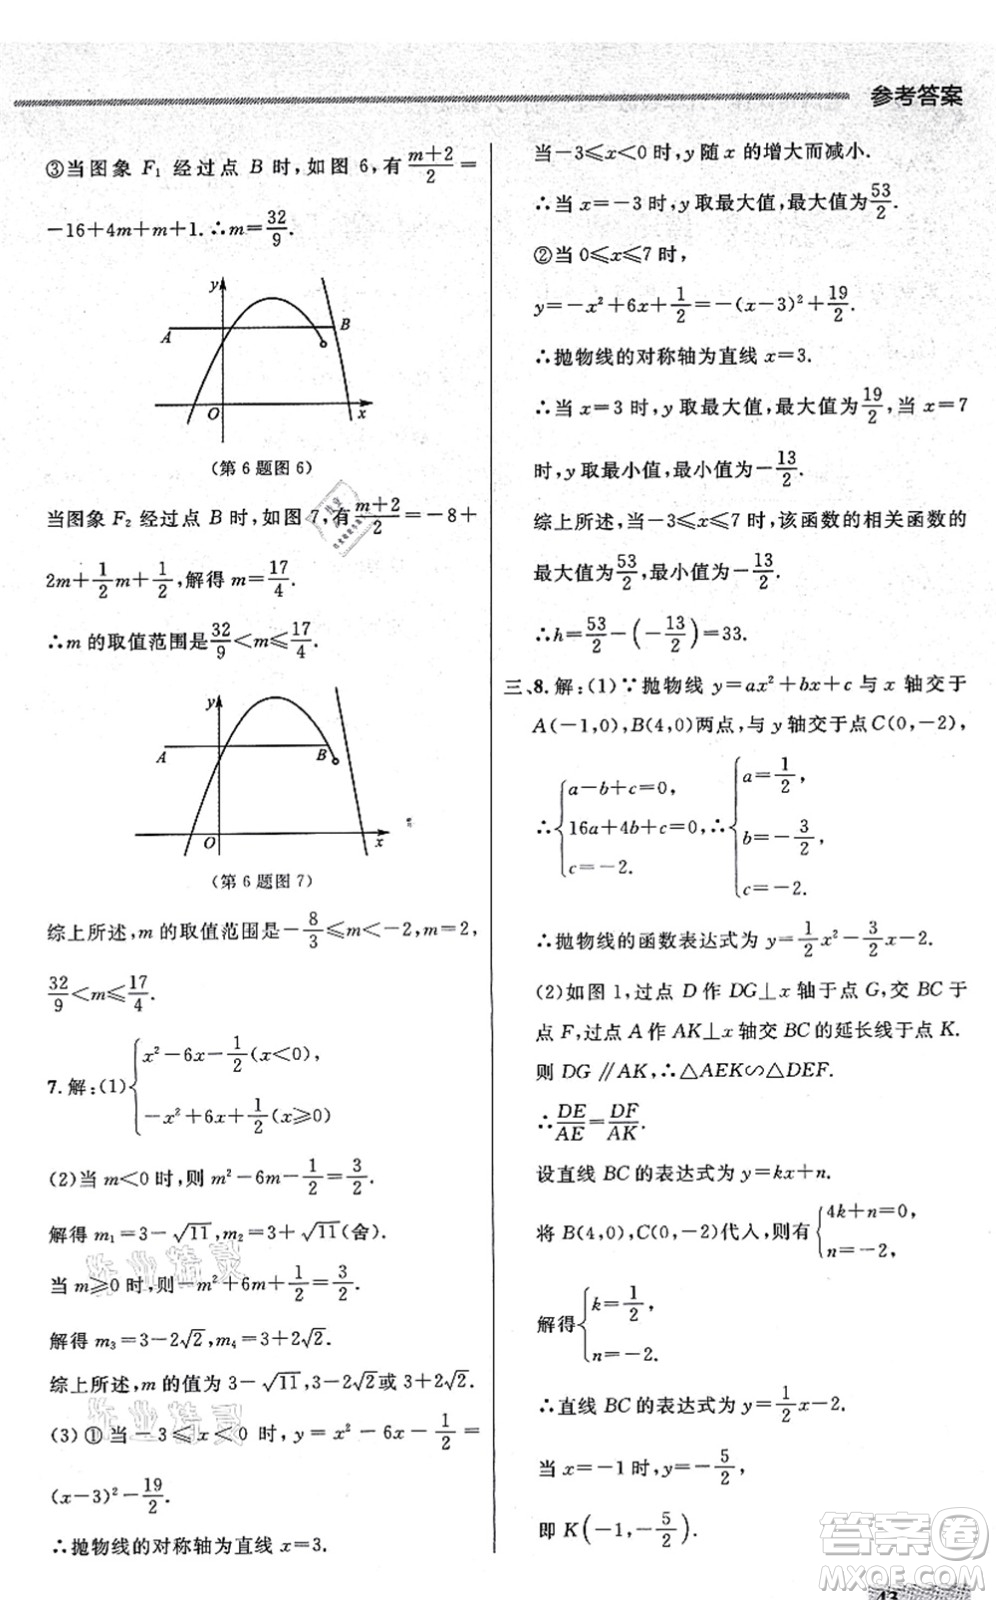 参考答案
③当图象 F₁ 经过点 B 时,如图 6,有(m+2)/2=
-16+4m+m+1.∴m=32/9.
y
A
B
O
x
(第 6 题图 6)
当图象 F₂ 经过点 B 时,如图 7,有(m+2)/2=-8+
2m+1/2m+1/2,解得 m=17/4.
∴m 的取值范围是32/9<m≤17/4.
y
A
B
O
x
(第 6 题图 7)
综上所述,m 的取值范围是-8/3≤m<-2,m=2,
32/9<m≤17/4.
7.解:(1){x²-6x-1/2(x<0),
-x²+6x+1/2(x≥0)
(2)当 m<0 时,则 m²-6m-1/2=3/2.
解得 m₁=3-√11,m₂=3+√11(舍).
当 m≥0 时,则-m²+6m+1/2=3/2.
解得 m₃=3-2√2,m₄=3+2√2.
综上所述,m 的值为 3-√11,3-2√2或 3+2√2.
(3) ① 当 -3≤x<0 时,y=x²-6x-1/2=
(x-3)²-19/2.
∴抛物线的对称轴为直线 x=3.
当-3≤x<0 时,y 随 x 的增大而减小.
∴当 x=-3 时,y 取最大值,最大值为53/2.
②当 0≤x≤7 时,
y=-x²+6x+1/2=-(x-3)²+19/2.
∴抛物线的对称轴为直线 x=3.
∴当 x=3 时,y 取最大值,最大值为19/2,当 x=7
时,y 取最小值,最小值为-13/2.
综上所述,当-3≤x≤7 时,该函数的相关函数的
最大值为53/2,最小值为-13/2.
∴h=53/2-(-13/2)=33.
三、8.解:(1)∵抛物线 y=ax²+bx+c 与 x 轴交于
A(-1,0),B(4,0)两点,与 y 轴交于点 C(0,-2),
∴{a-b+c=0, 16a+4b+c=0, c=-2. ∴{a=1/2, b=-3/2, c=-2.
∴抛物线的函数表达式为 y=1/2x²-3/2x-2.
(2)如图 1,过点 D 作 DG⊥x 轴于点 G,交 BC 于
点 F,过点 A 作 AK⊥x 轴交 BC 的延长线于点 K.
则 DG∥AK,∴△AEK∽△DEF.
∴DE/AE=DF/AK.
设直线 BC 的表达式为 y=kx+n.
将 B(4,0),C(0,-2)代入,则有{4k+n=0, n=-2,
解得{k=1/2, n=-2.
∴直线 BC 的表达式为 y=1/2x-2.
当 x=-1 时,y=-5/2,
即 K(-1,-5/2).
作业精灵
作业精灵
答案圈
MXQE.COM
43